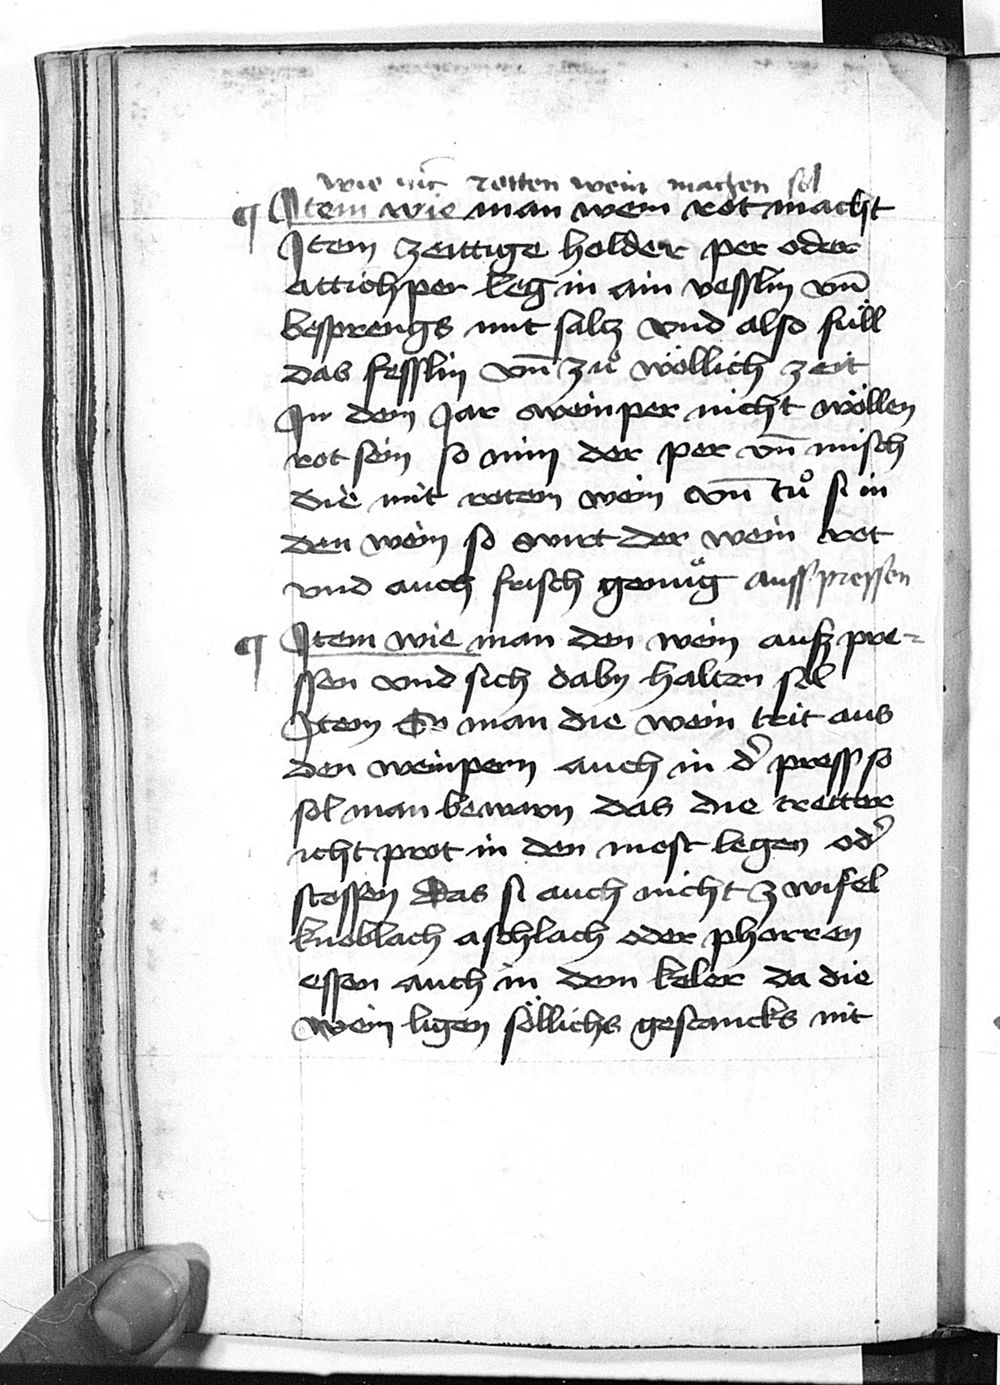 wie mā rotten wein machen sol
¶ Jtem wie man wein rot macht
Jtem zeittige holder per oder
attichper leg in ain vesslin vn̄
besprengs mit saltz vnd also füll
das fesslin vn̄ zuͦ wöllich zeit
Jn dem Jar weinper nicht wöllen
rot sein so nim der per vn̄ misch
die mit rotem wein vn̄ tuͦ si in
den wein so wirt der wein rot
vnd auch frisch genuͦg ausspressen
¶ Jtem wie man den wein ausz pre-
ssen vnd sich daby halten sol
Jtem So man die wein trit aus
den weinpern auch in dˀ press so
sol man bewarn das die tretter
icht prot in den most legen odˀ
stossen Das si auch nicht zwifel
knoblach aschlach oder phorren
essen auch in dem keler da die
wein ligen söllichs gestancks nit